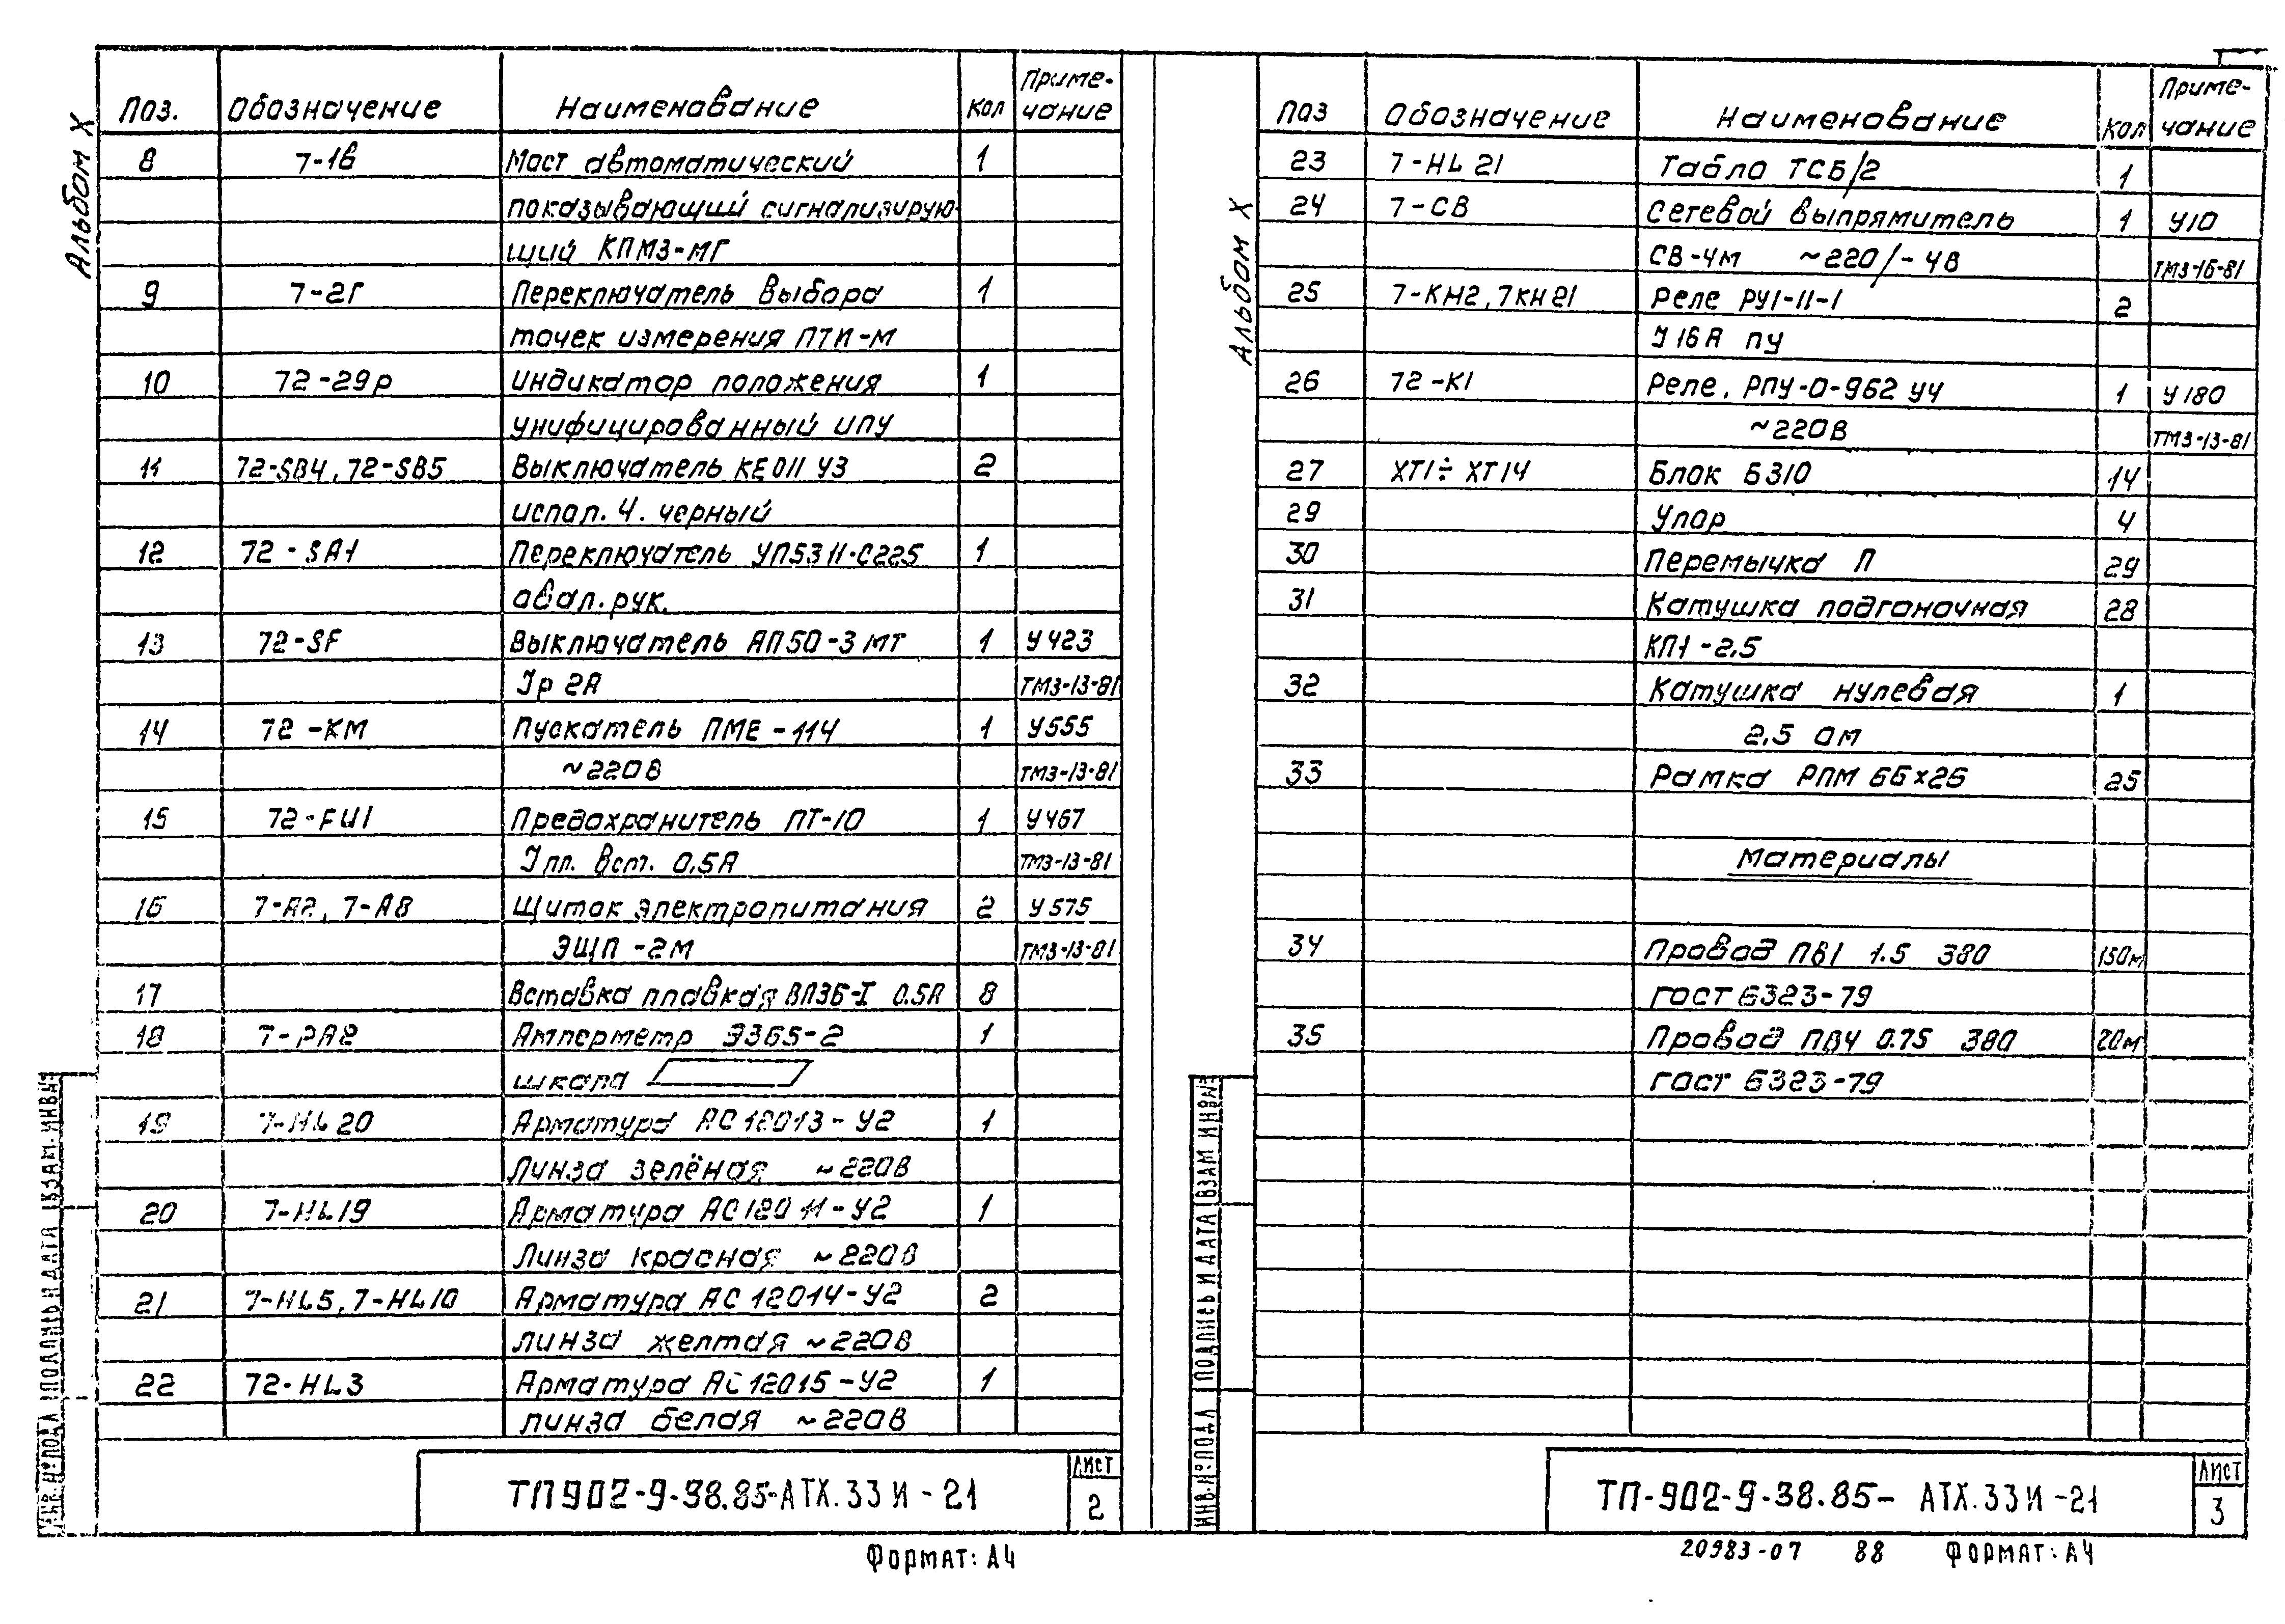 Альбом X
Поз. Обозначение Наименование Кол Приме-
чание
8 7-1в Мост автоматический 1
показывающий сигнализирую-
щий КПМ3-МГ
9 7-2г Переключатель выбора 1
точек измерения ПТИ-М
10 72-29р Индикатор положения 1
унифицированный ИПУ
11 72-SB4, 72-SB5 Выключатель КЕ011 У3 2
испол. 4. черный
12 72-SA1 Переключатель УП5311-С225 1
овал. рук.
13 72-SF Выключатель АП50-3МТ 1 У423
Iр 2А ТМ3-13-81
14 72-КМ Пускатель ПМЕ-114 1 У555
~220В ТМ3-13-81
15 72-FU1 Предохранитель ПТ-10 1 У467
Iпл. вст. 0.5А ТМ3-13-81
16 7-А2, 7-А8 Щиток электропитания 2 У575
ЭЩП-2М ТМ3-13-81
17 Вставка плавкая ВПЗБ-I 0.5А 8
18 7-РА2 Амперметр Э365-2 1
шкала
19 7-HL20 Арматура АС12013-У2 1
Линза зелёная ~220В
20 7-HL19 Арматура АС12011-У2 1
Линза красная ~220В
21 7-HL5, 7-HL10 Арматура АС12014-У2 2
линза желтая ~220В
22 72-HL3 Арматура АС12015-У2 1
линза белая ~220В
ИНВ.№ ПОДЛ ПОДПИСЬ И ДАТА ВЗАМ. ИНВ№
ТП902-9-38.85-АТХ.33И-21
Лист
2
Формат: А4
Альбом X
Поз Обозначение Наименование Кол Приме-
чание
23 7-HL21 Табло ТСБ/2 1
24 7-СВ Сетевой выпрямитель 1 У10
СВ-4М ~220/-4В ТМ3-16-81
25 7-КН2, 7КН21 Реле РУ1-11-1 2
I 16А пу
26 72-К1 Реле, РПУ-0-962 У4 1 У180
~220В ТМ3-13-81
27 ХТ1÷ХТ14 Блок Б310 14
29 Упор 4
30 Перемычка П 29
31 Катушка подгоночная 28
КП1-2,5
32 Катушка нулевая 1
2,5 ом
33 Рамка РПМ 66х26 25
Материалы
34 Провод ПВ1 1.5 380 150м
ГОСТ 6323-79
35 Провод ПВ4 0.75 380 20м
ГОСТ 6323-79
ИНВ.№ ПОДЛ ПОДПИСЬ И ДАТА ВЗАМ ИНВ№
ТП-902-9-38.85-АТХ.33И-21
Лист
3
20983-07 88 Формат: А4